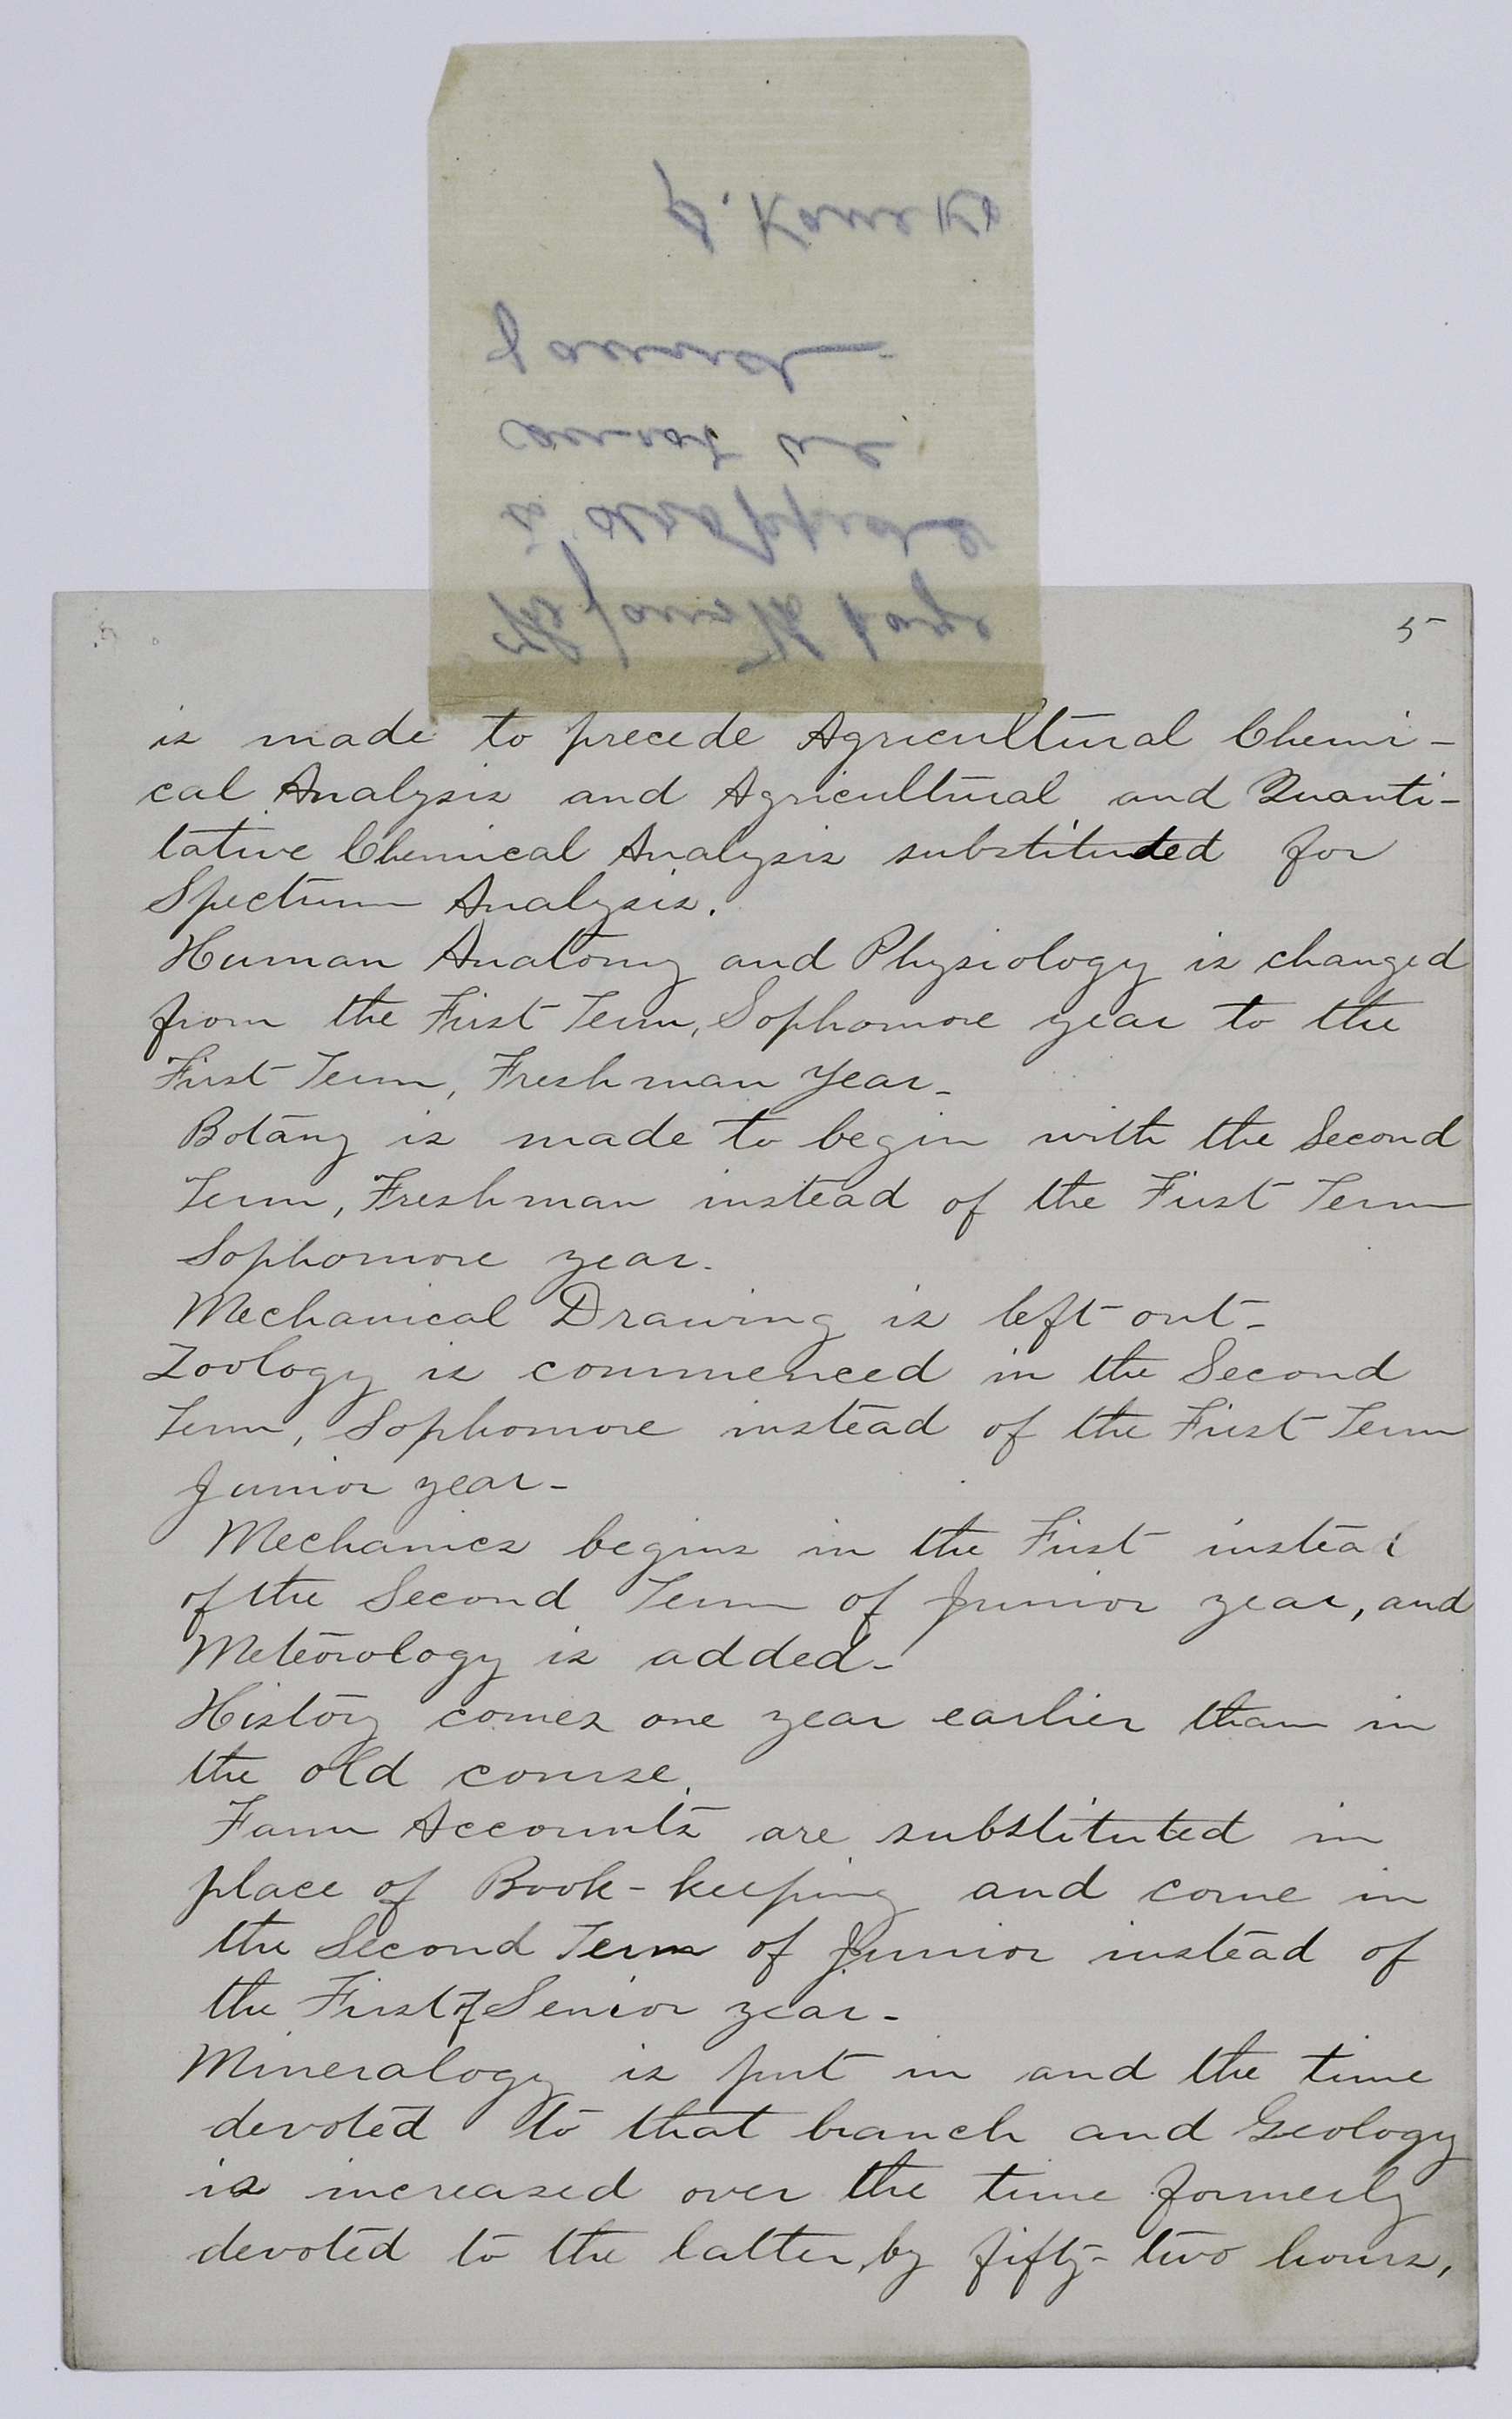 The fourth page
is
cannot be
found
Kaneko
5
is made to precede Agricultural Chemi-
cal Analysis and Agricultural and Quanti-
tative Chemical Analysis substituted for
Spectrum Analysis.
Human Anatomy and Physiology is changed
from the First Term, Sophomore year to the
First Term, Freshman year-
Botany is made to begin with the Second
Term, Freshman instead of the First Term
Sophomore year.
Mechanical Drawing is left out-
Zoology is commenced in the Second
Term, Sophomore instead of the First Term
Junior year-
Mechanics begins in the First instead
of the Second Term of Junior year, and
Meteorology is added-
History comes one year earlier than in
the old course.
Farm Accounts are substituted in
place of Book-keeping and come in
the Second Term of Junior instead of
the First of Senior year-
Mineralogy is put in and the time
devoted to that branch and Geology
is increased over the time formerly
devoted to the latter, by fifty-two hours,